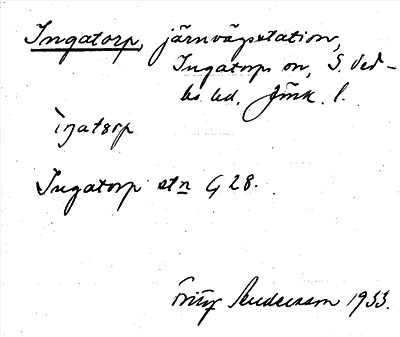 Ingatorp, järnvägsstation,
Ingatorps sn, S. Ved-
bo hd, Jönk. l.
ìŋatorp
Ingatorp stn G 28.
Fritz Anderson 1933.